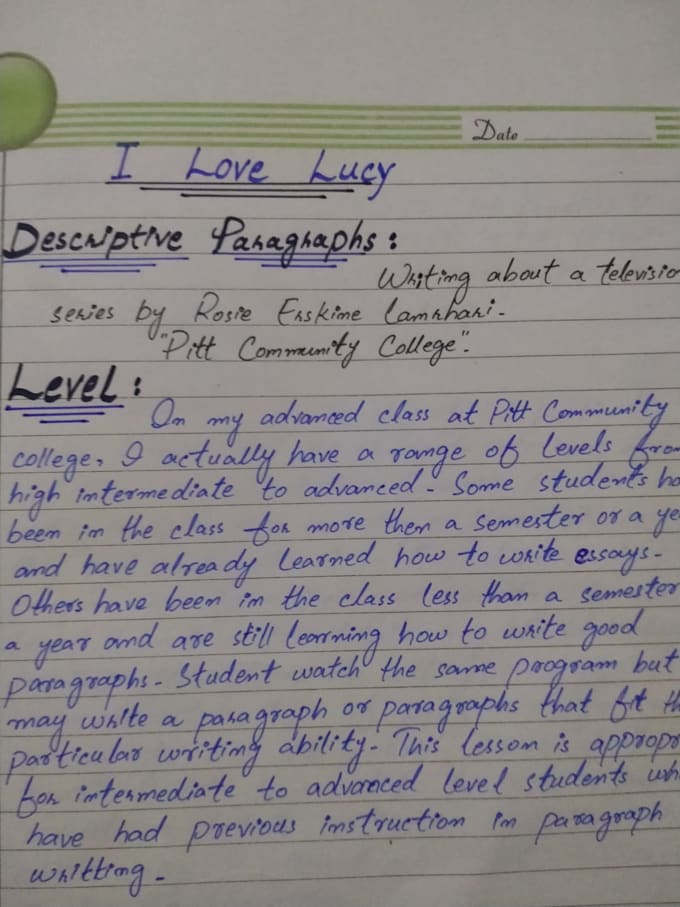 Date
I Love Lucy
Descriptive Paragraphs:
Writing about a televisio
series by Rosie Erskine Lamrhari.
"Pitt Community College".
Level:
In my advanced class at Pitt Community
college, I actually have a range of levels from
high intermediate to advanced. Some students ha
been in the class for more then a semester or a ye
and have already learned how to write essays.
Others have been in the class less than a semester
a year and are still learning how to write good
paragraphs. Student watch the same program but
may write a paragraph or paragraphs that fit th
particular writing ability. This lesson is appropr
for intermediate to advanced level students wh
have had previous instruction in paragraph
writting.